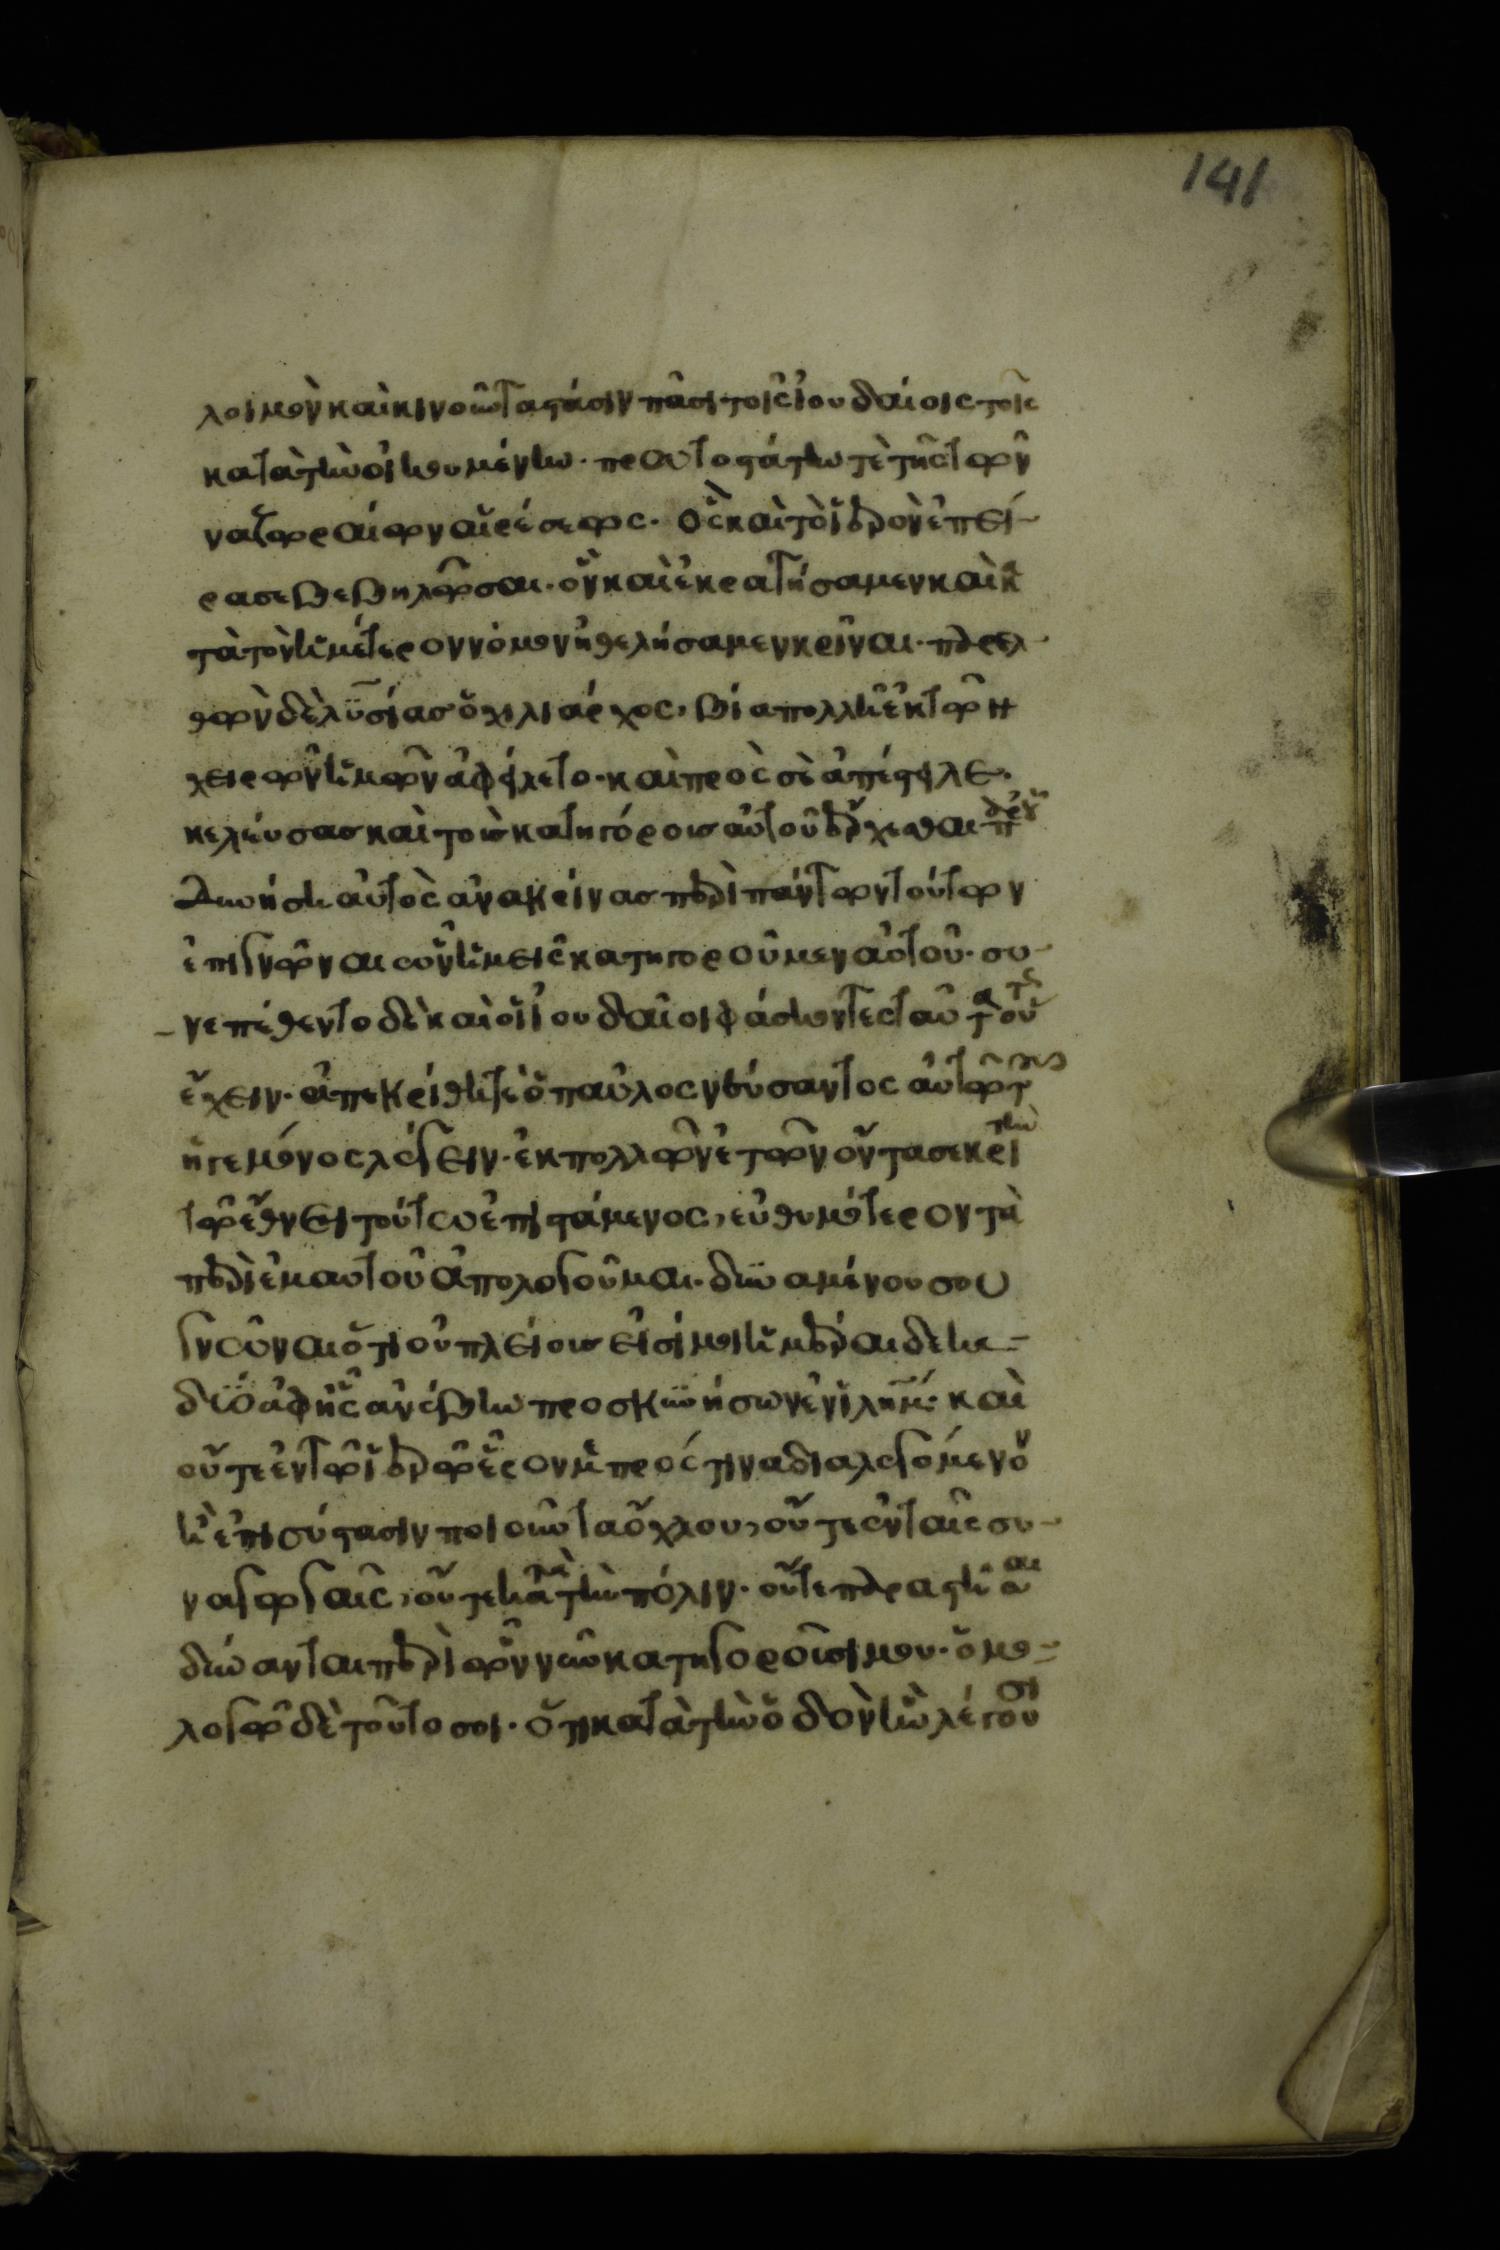 141
λοιμὸν καὶ κινοῦντα στάσιν πᾶσι τοῖς ἰουδαίοις τοῖς
κατὰ τὴν οἰκουμένην· πρωτοστάτην τὲ τῆς τῶν
ναζωραίων αἱρέσεως· ὃς καὶ τὸ ἱερὸν ἐπεί-
ρασε βεβηλῶσαι· ὃν καὶ ἐκρατήσαμεν καὶ κ
τὰ τὸν ἡμέτερον νόμον ἠθελήσαμεν κρῖναι· παρελ-
θὼν δὲ λυσίας ὁ χιλίαρχος, βία πολλῆ ἐκ τῶν
χειρῶν ἡμῶν ἀφείλετο· καὶ πρὸς σὲ ἀπέστειλε·
κελεύσας καὶ τοὺς κατηγόροις αὐτοῦ ἔρχεσθαι π
δυνήση αὐτὸς ἀνακρίνας περὶ πάντων τούτων
ἐπιγνῶναι ὧν ἡμεῖς κατηγοροῦμεν αὐτοῦ· συ-
νεπέθεντο δὲ καὶ οἱ ἰουδαῖοι φάσκοντες ταῦτα οὕτως
ἔχειν· ἀπεκρίθη δὲ ὁ παῦλος νεύσαντος αὐτῷ τοῦ
ἡγεμόνος λέγειν· ἐκ πολλῶν ἐτῶν ὄντα σε κριτὴν
τῶ ἔθνει τούτω ἐπιστάμενος, εὐθυμότερον τὰ
περὶ ἐμαυτοῦ ἀπολογοῦμαι· δυναμένου σου
γνῶναι ὅτι οὐ πλείους εἰσί μοι ἡμέραι δεκα-
δύο ἀφ' ἧς ἀνέβην προσκυνήσων ἐν ἰλημ· καὶ
οὔτε ἐν τῶ ἱερῶ εὗρον με πρός τινα διαλεγόμενον
ἢ ἐπισύστασιν ποιοῦντα ὄχλου, οὔτε ἐν ταῖς συ-
ναγωγαῖς, οὔτε κατὰ τὴν πόλιν· οὔτε παραστῆσαι
δύνανται περὶ ὧν νῦν κατηγοροῦσί μου· ὁμο-
λογῶ δὲ τοῦτο σοι· ὅτι κατὰ τὴν ὁδὸν ἣν λέγουσι